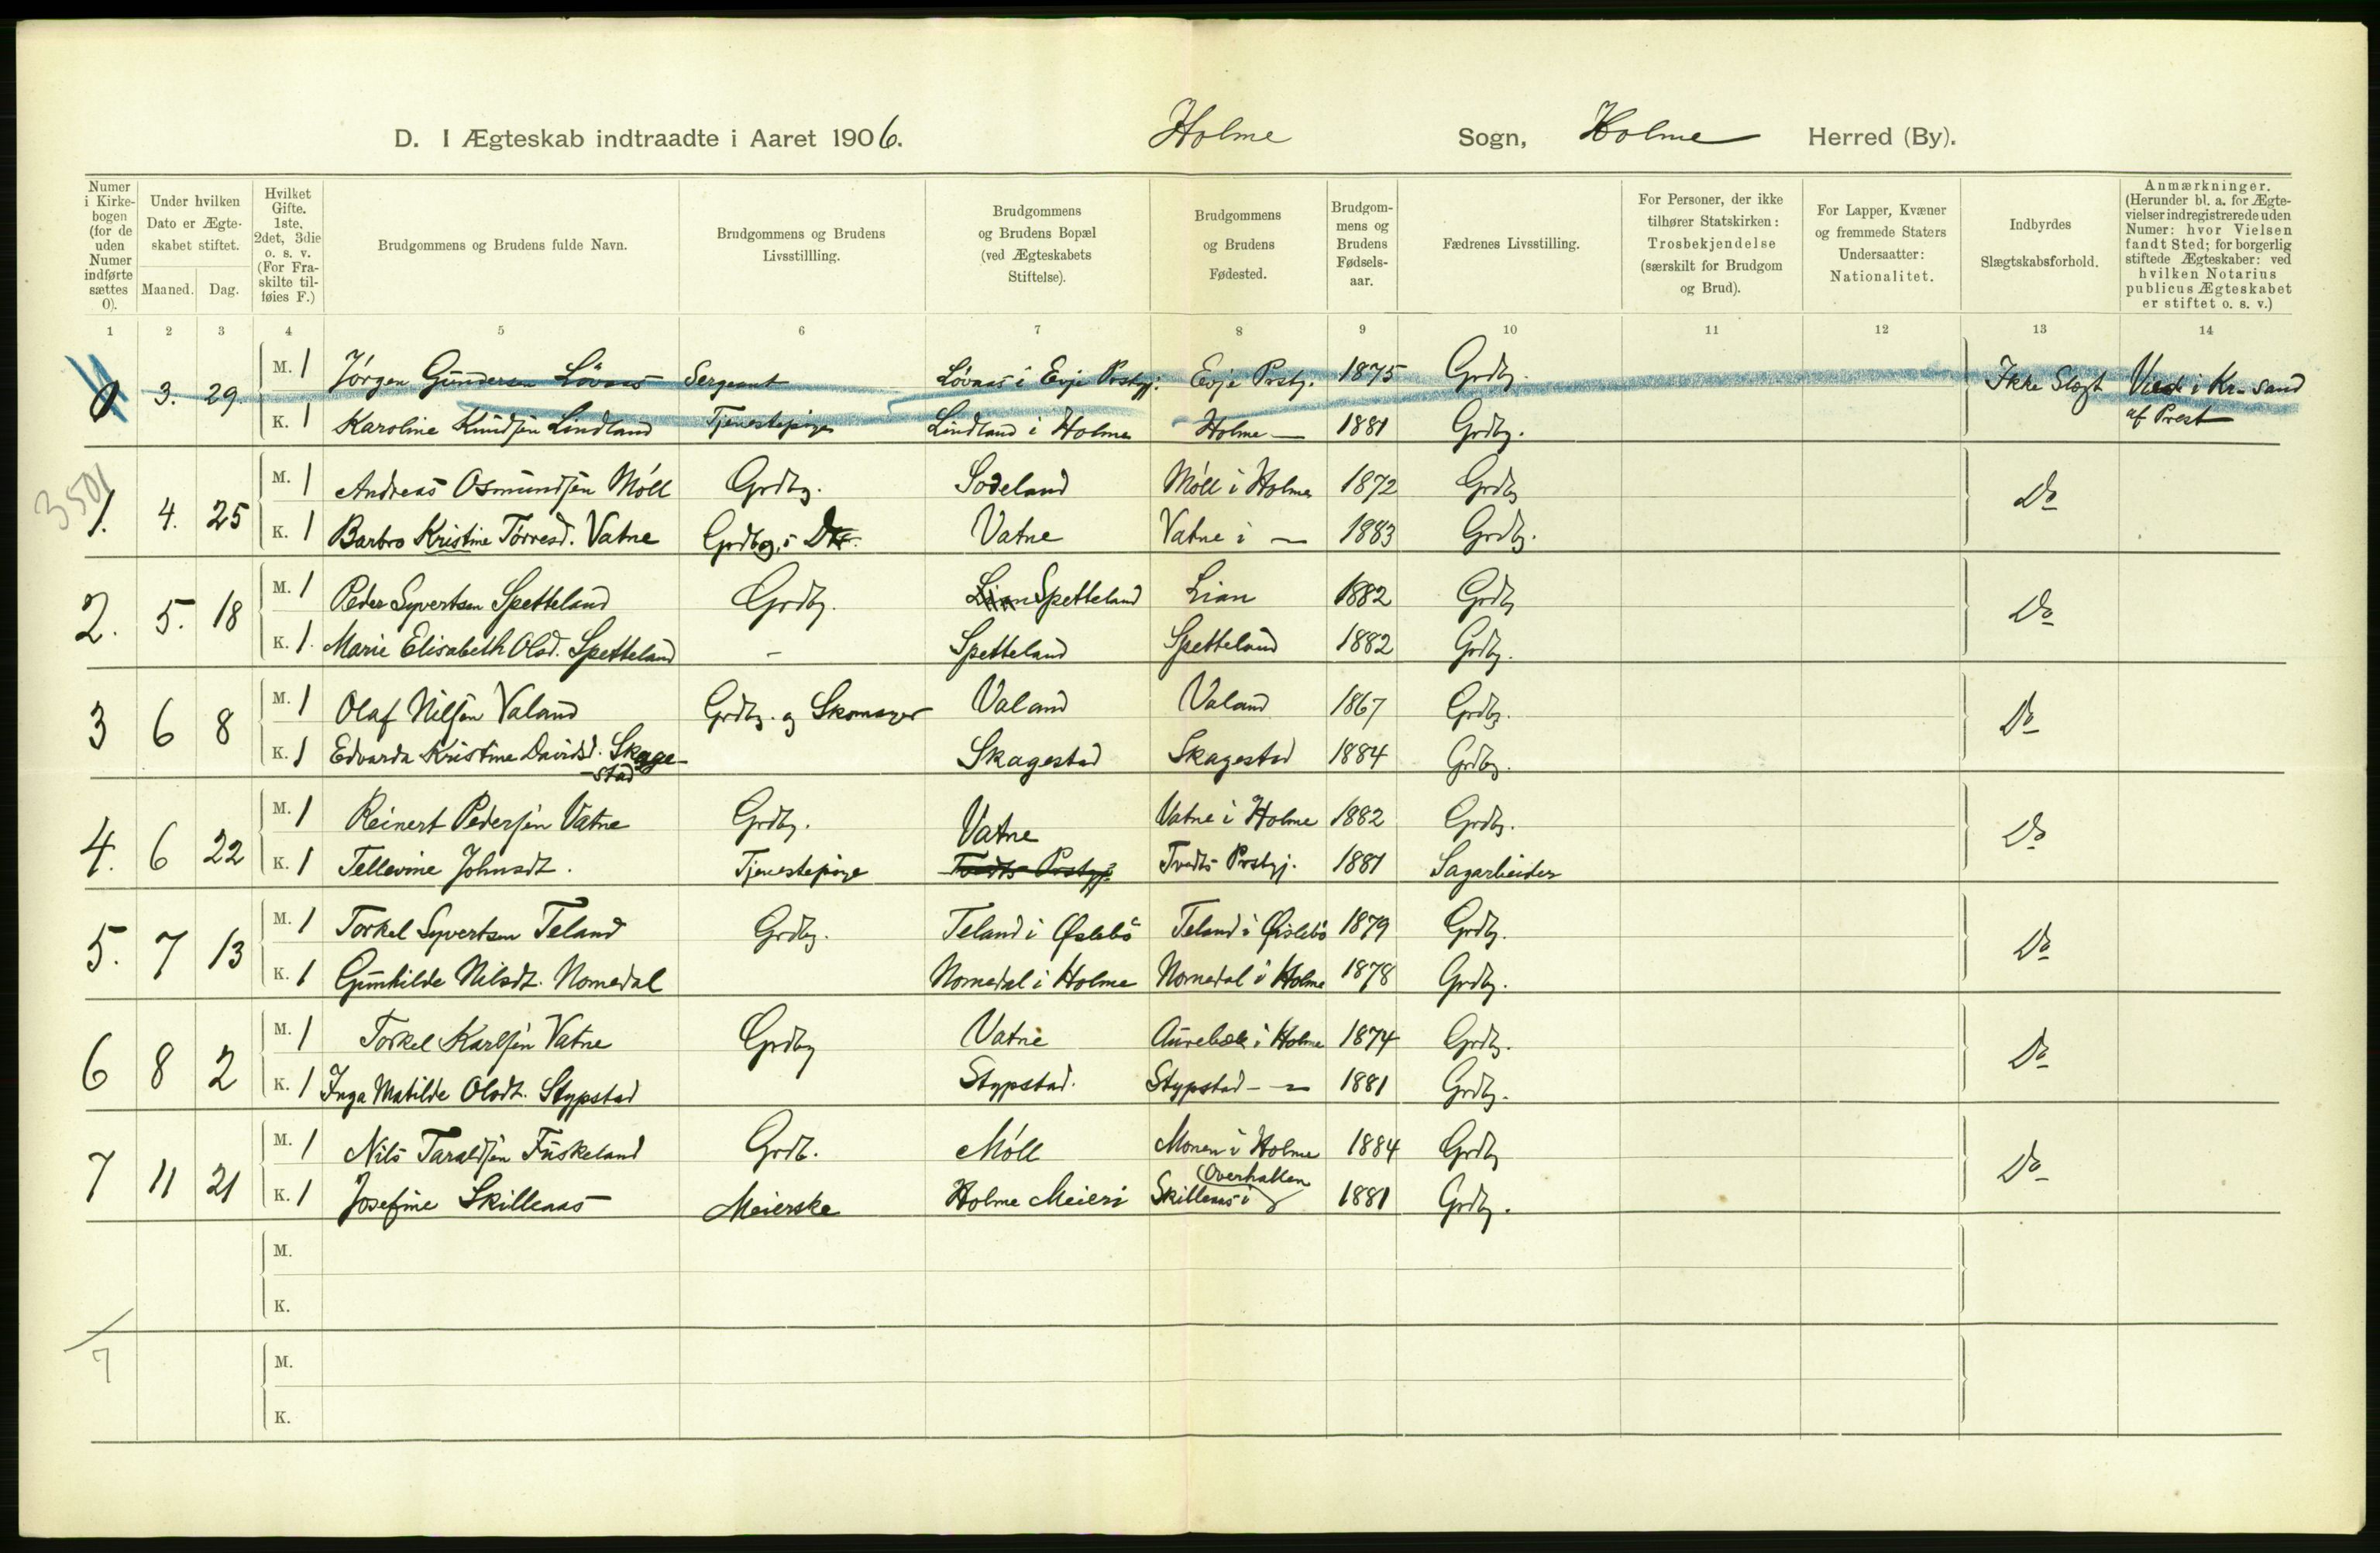 D. I Ægteskab indtraadte i Aaret 1906. Holme Sogn, Holme Herred (By).
Numer i Kirkebogen (for de uden Numer indførte sættes 0).
Under hvilken Dato er Ægteskabet stiftet.
Maaned. Dag.
Hvilket Gifte. 1ste, 2det, 3die o. s. v. (For Fraskilte tilføies F.)
Brudgommens og Brudens fulde Navn.
Brudgommens og Brudens Livsstillling.
Brudgommens og Brudens Bopæl (ved Ægteskabets Stiftelse).
Brudgommens og Brudens Fødested.
Brudgommens og Brudens Fødselsaar.
Fædrenes Livsstilling.
For Personer, der ikke tilhører Statskirken: Trosbekjendelse (særskilt for Brudgom og Brud).
For Lapper, Kvæner og fremmede Staters Undersaatter: Nationalitet.
Indbyrdes Slægtskabsforhold.
Anmærkninger. (Herunder bl. a. for Ægtevielser indregistrerede uden Numer: hvor Vielsen fandt Sted; for borgerlig stiftede Ægteskaber: ved hvilken Notarius publicus Ægteskabet er stiftet o. s. v.)
1 2 3 4 5 6 7 8 9 10 11 12 13 14
3. 29. M. 1 Jörgen Gundersen Lövaas Sergeant Lövaas i Evje Prstgj: Evje Prstgj. 1875 Grdbg. Ikke Slægt Viede i Kr.sand
K. 1 Karoline Knudsen Lindland Tjenestepige Lindland i Holme Holme — 1881 Grdbg. af Prest
3501
1. 4. 25 M. 1 Andreas Osmundsen Möll Grdbg. Sodeland Möll i Holme 1872 Grdbg Do
K. 1 Barbro Kristine Torresd. Vatne Grdbg.s Dtr. Vatne Vatne i — 1883 Grdbg.
2. 5. 18 M. 1 Peder Syvertsen Spetteland Grdbg. Lian Spetteland Lian 1882 Grdbg Do
K. 1. Marie Elisabeth Olsd. Spetteland – Spetteland Spetteland 1882 Grdbg.
3 6 8 M. 1 Olaf Nilsen Valand Grdbg. og Skomager Valand Valand 1867 Grdbg. Do
K. 1 Edvarda Kristine Davidsd. Skage-
stad Skagestad Skagestad 1884 Grdbg.
4. 6 22 M. 1 Reinert Pedersen Vatne Grdbg. Vatne Vatne i Holme 1882 Grdbg. Do
K. 1 Tellevine Johnsdt. Tjenestepige Tvedts Prstgj. Tvedts Prstgj. 1881 Sagarbeider
5. 7 13 M. 1 Torkel Syvertsen Teland Grdbg. Teland i Øslebö Teland i Øislebö 1879 Grdbg. Do
K. 1 Gunhilde Nilsdt. Nomedal Nomedal i Holme Nomedal i Holme 1878 Grdbg.
6 8 2 M. 1 Torkel Karlsen Vatne Grdbg Vatne Aurebæk i Holme 1874 Grdbg. Do
K. 1 Inga Matilde Olsdt. Stypstad Stypstad. Stypstad – — 1881 Grdbg.
7 11 21 M. 1 Nils Taraldsen Fuskeland Grdb. Möll Monen i Holme 1884 Grdbg Do
K. 1 Josefine Skillenaas Meierske Holme Meieri Skillenaas i Overhallen 1881 Grdbg.
M.
K.
7
M.
K.